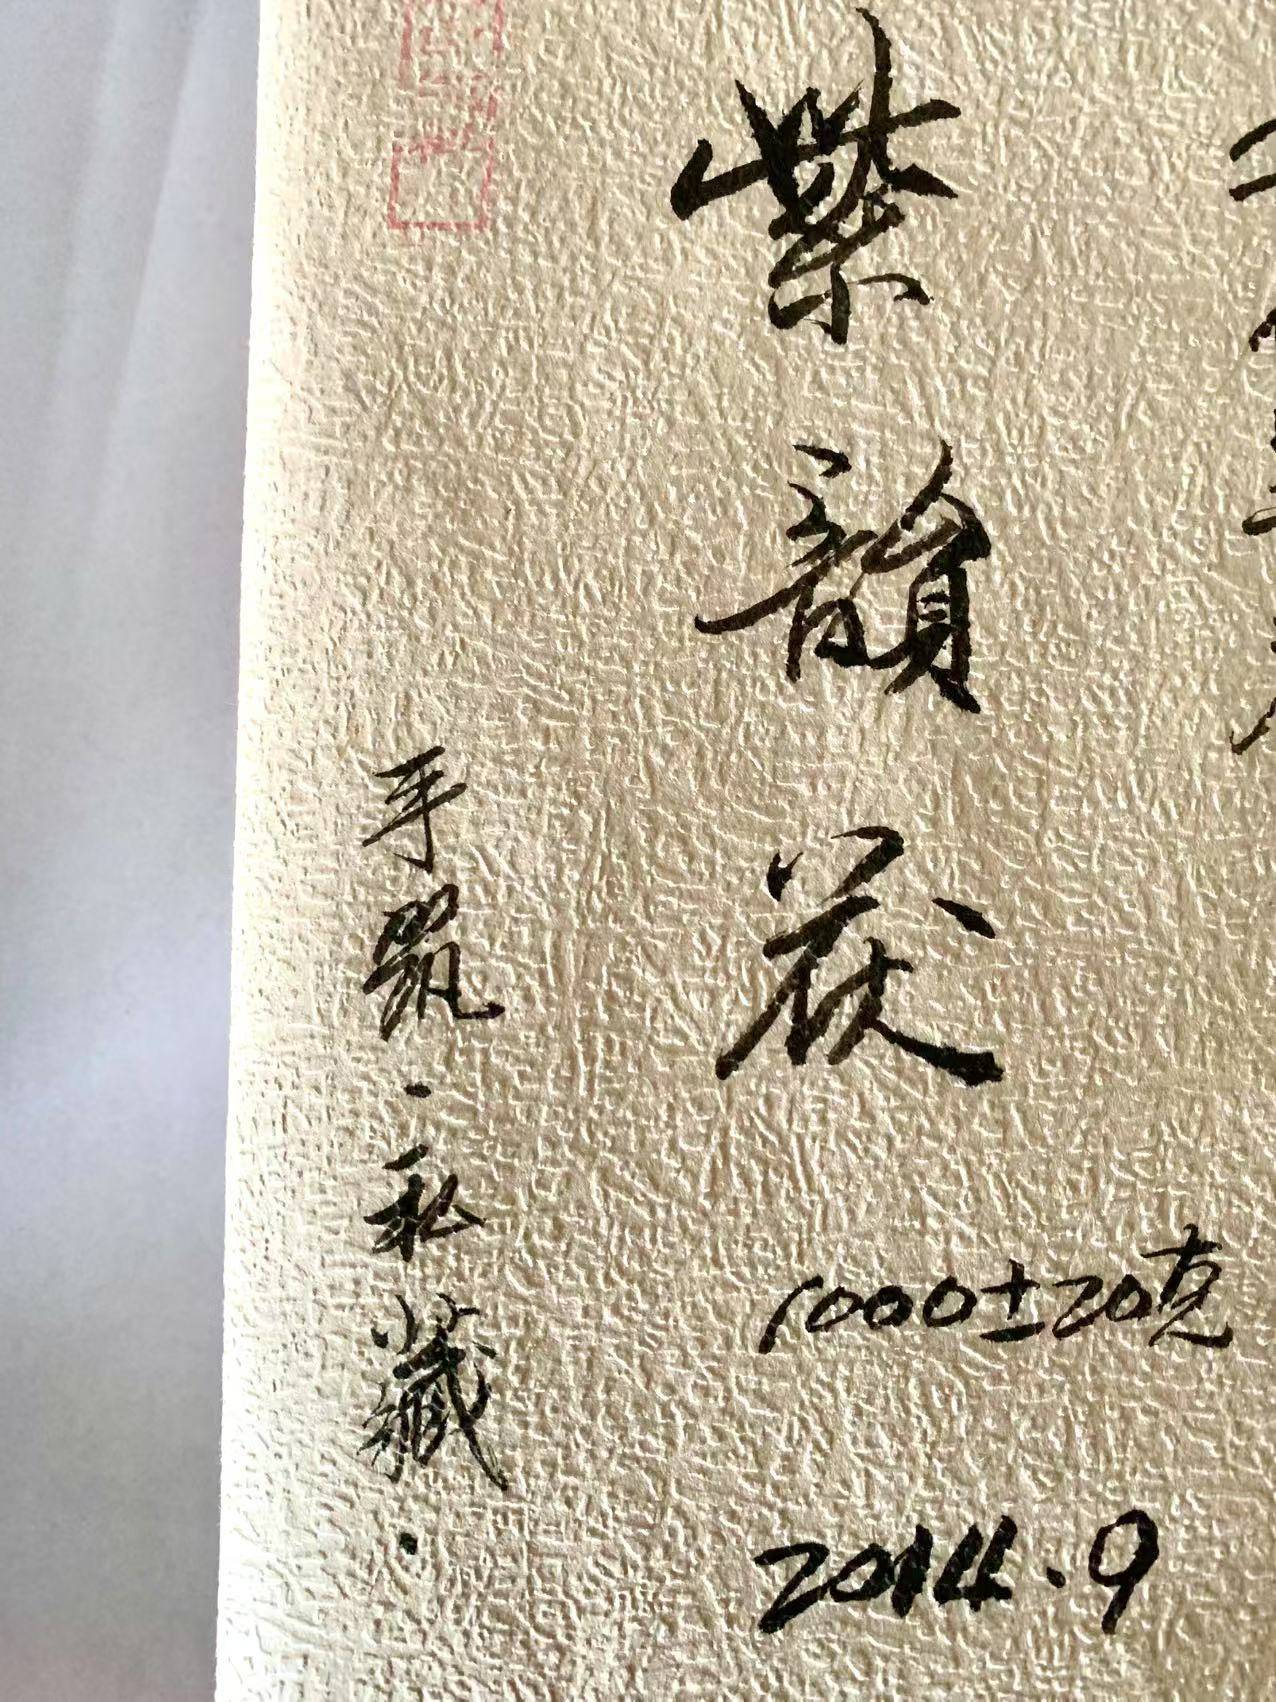 紫韻茯
1000±20克
2014.9
手筑·私藏·